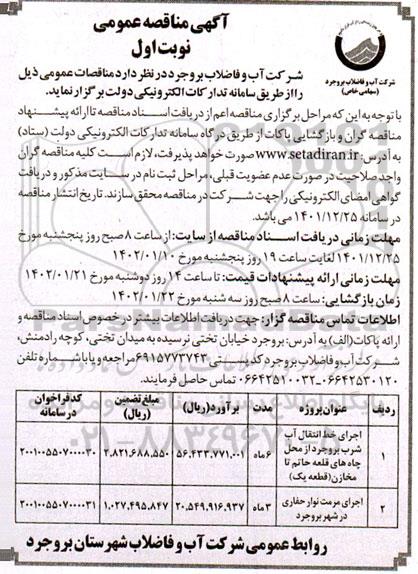 آگهی مناقصه عمومی
نوبت اول
شرکت آب و فاضلاب بروجرد
(سهامی خاص)
شرکت آب و فاضلاب بروجرد در نظر دارد مناقصات عمومی ذیل
را از طریق سامانه تدارکات الکترونیکی دولت برگزار نماید.
با توجه به این که مراحل برگزاری مناقصه اعم از دریافت اسناد مناقصه تا ارائه پیشنهاد
مناقصه گران و بازگشایی پاکات از طریق درگاه سامانه تدارکات الکترونیکی دولت (ستاد)
به آدرس: www.setadiran.ir صورت خواهد پذیرفت، لازم است کلیه مناقصه گران
واجد صلاحیت در صورت عدم عضویت قبلی، مراحل ثبت نام در سایت مذکور و دریافت
گواهی امضای الکترونیکی را جهت شرکت در مناقصه محقق سازند. تاریخ انتشار مناقصه
در سامانه ۱۴۰۱/۱۲/۲۵ می باشد.
مهلت زمانی دریافت اسناد مناقصه از سایت: از ساعت ۸ صبح روز پنجشنبه مورخ
۱۴۰۱/۱۲/۲۵ لغایت ساعت ۱۹ روز پنجشنبه مورخ ۱۴۰۲/۰۱/۱۰
مهلت زمانی ارائه پیشنهادات قیمت: تا ساعت ۱۴ روز دوشنبه مورخ ۱۴۰۲/۰۱/۲۱
زمان بازگشایی: ساعت ۸ صبح روز سه شنبه مورخ ۱۴۰۲/۰۱/۲۲
اطلاعات تماس مناقصه گزار: جهت دریافت اطلاعات بیشتر در خصوص اسناد مناقصه و
ارائه پاکات (الف) به آدرس: بروجرد خیابان تختی نرسیده به میدان تختی، کوچه رادمنش،
شرکت آب و فاضلاب بروجرد کدپستی ۶۹۱۵۷۷۳۷۴۳ مراجعه و یا با شماره تلفن
۰۶۶۴۲۵۳۰۱۲۰-۰۶۶۴۲۵۱۰۰۳۲ تماس حاصل فرمایند.
ردیف عنوان پروژه مدت برآورد (ریال) مبلغ تضمین (ریال) کد فراخوان در سامانه
۱ اجرای خط انتقال آب شرب بروجرد از محل چاه های قلعه حاتم تا مخازن (قطعه یک) ۶ ماه ۵۶,۴۳۳,۷۷۱,۰۰۱ ۲,۸۲۱,۶۸۸,۵۵۰ ۲۰۰۱۰۰۵۵۰۷۰۰۰۰۳۰
۲ اجرای مرمت نوار حفاری در شهر بروجرد ۳ ماه ۲۰,۵۴۹,۹۱۶,۹۳۷ ۱,۰۲۷,۴۹۵,۸۴۷ ۲۰۰۱۰۰۵۵۰۷۰۰۰۰۳۱
روابط عمومی شرکت آب و فاضلاب شهرستان بروجرد